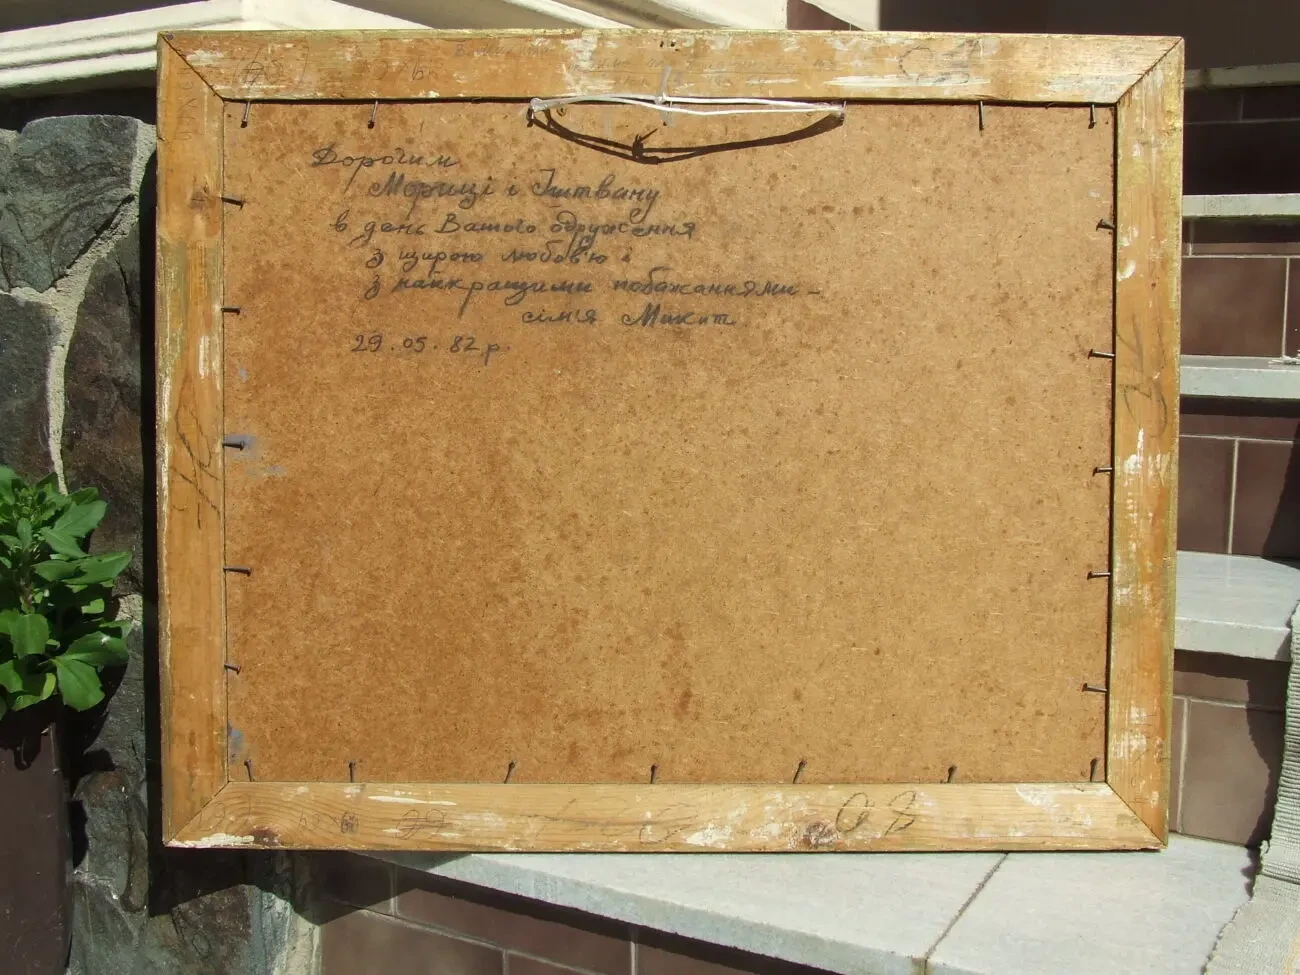 Дорогим
Мориці і Іштвану
в день Вашого одруження
з щирою любов'ю і
з найкращими побажаннями –
сім'я Микит
29.05.82 р.
08